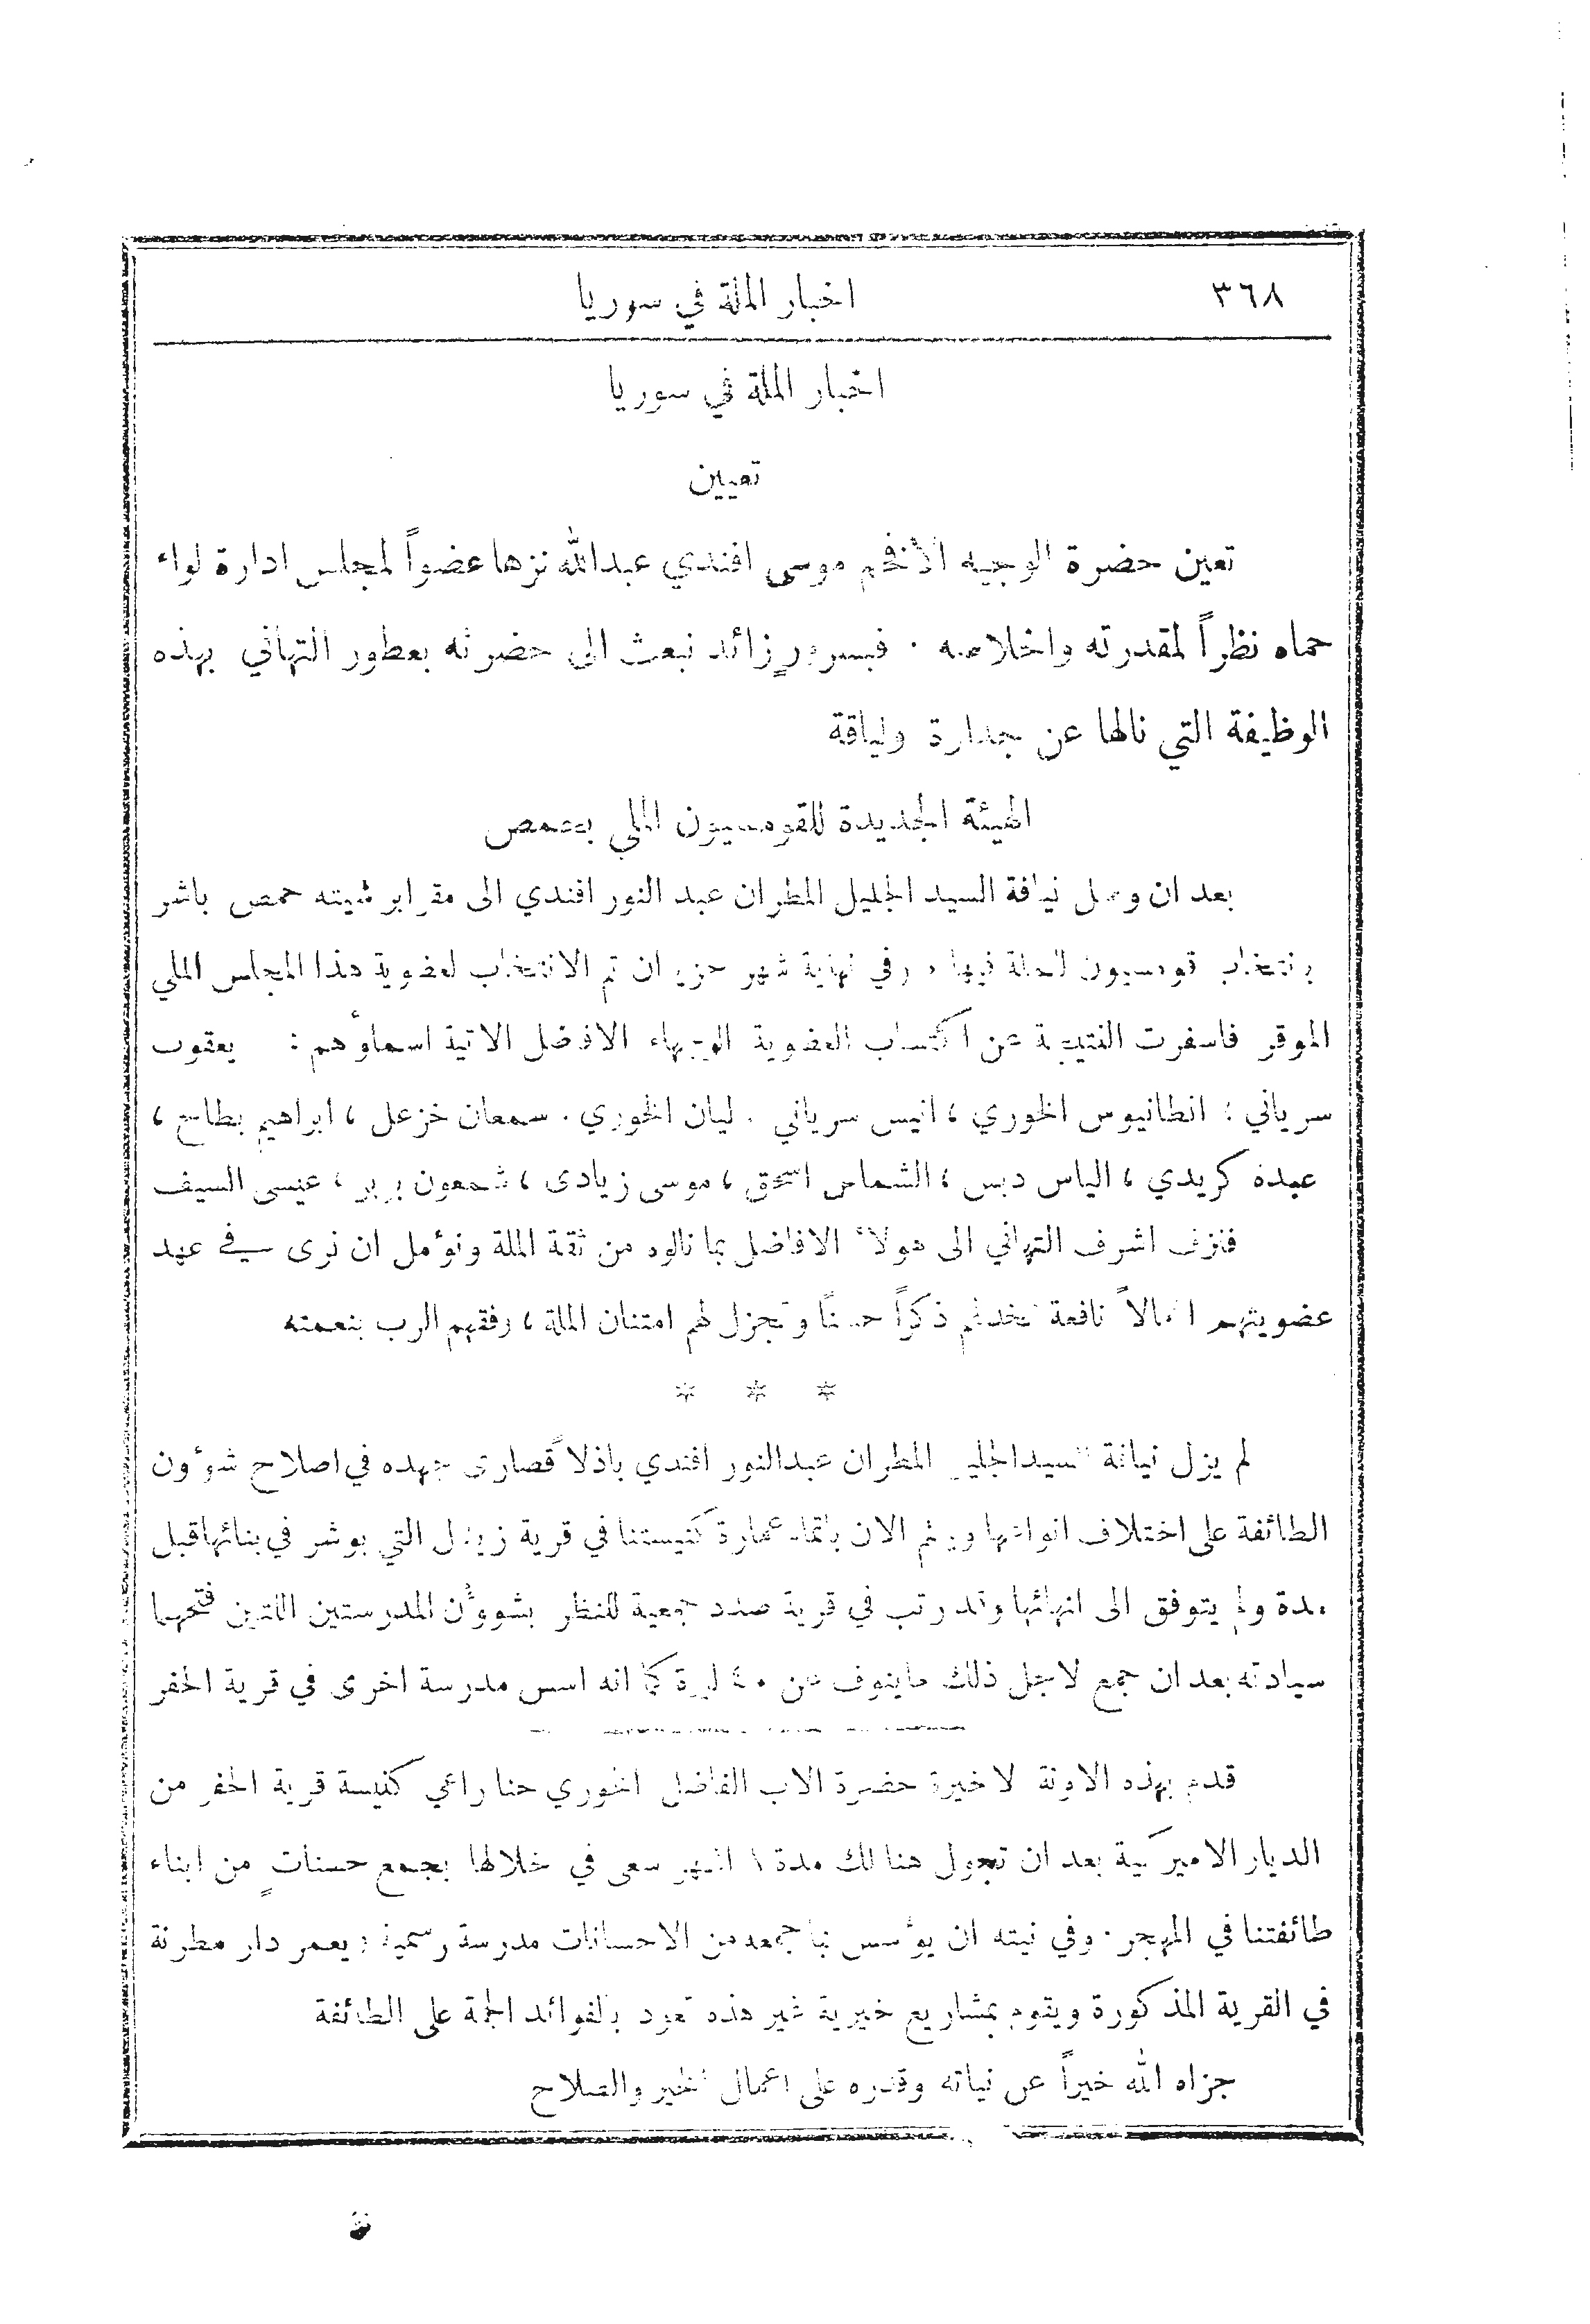 ٣٦٨ اخبار الملة في سوريا
اخبار الملة في سوريا
تعيين
تعين حضرة الوجيه الافخم موسى افندي عبدالله نزها عضواً لمجلس ادارة لواء
حماه نظراً لمقدرته واخلاصه ٠ فبسرورٍ زائد نبعث الى حضرته بعطور التهاني بهذه
الوظيفة التي نالها عن جدارة ولياقة
الهيئة الجديدة للقومسيون الملي بحمص
بعد ان وصل نيافة السيد الجليل المطران عبد النور افندي الى مقر ابرشيته حمص باشر
بانتخاب قومسيون للملة فيها وفي نهاية شهر حزيران تم الانتخاب لعضوية هذا المجلس الملي
الموقر فاسفرت النتيجة عن اكتساب العضوية الوجهاء الافاضل الاتية اسماؤهم : يعقوب
سرياني ؛ انطانيوس الخوري ، انيس سرياني . ليان الخوري . سمعان خزعل ، ابراهيم بطاح ،
عبده كريدي ، الياس دبس ، الشماس اسحق ، موسى زيادى ، شمعون بربر ، عيسى السيف
فنزف اشرف التهاني الى هولاء الافاضل بما نالوه من ثقة الملة ونؤمل ان نرى في عهد
عضويتهم اعمالاً نافعة تخلد لهم ذكراً حسناً وتجزل لهم امتنان الملة ، رفقهم الرب بنعمته
* * *
لم يزل نيافة السيد الجليل المطران عبدالنور افندي باذلاً قصارى جهده في اصلاح شؤون
الطائفة على اختلاف انواعها ويهتم الان باتمام عمارة كنيستنا في قرية زيدل التي بوشر في بنائها قبل
مدة ولم يتوفق الى انهائها وقد رتب في قرية صدد جمعية للنظر بشوؤن المدرستين اللتين فتحهما
سيادته بعد ان جمع لاجل ذلك ماينوف عن ٤٠ ليرة كما انه اسس مدرسة اخرى في قرية الحفر
قدم بهذه الاونة الاخيرة حضرة الاب الفاضل الخوري حنا راعي كنيسة قرية الحفر من
الديار الاميركية بعد ان تجول هنالك مدة اشهر سعى في خلالها بجمع حسناتٍ من ابناء
طائفتنا في المهجر ٠ وفي نيته ان يؤسس بما جمعه من الاحسانات مدرسة رسمية ويعمر دار مطرنة
في القرية المذكورة ويقوم بمشاريع خيرية غير هذه تعود بالفوائد الجمة على الطائفة
جزاه الله خيراً عن نياته وقدره على اعمال الخير والصلاح